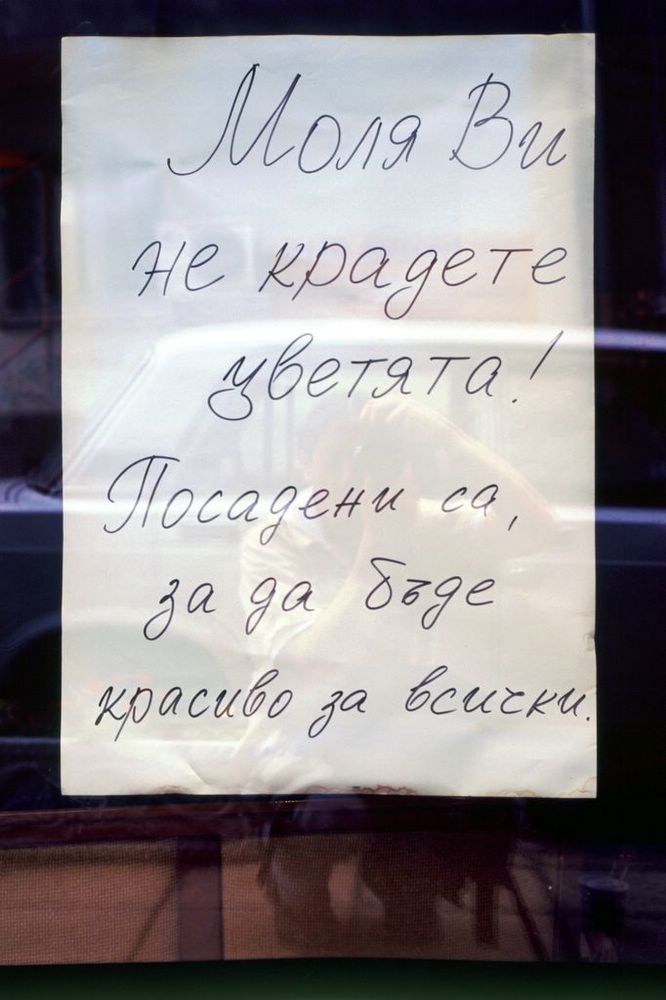 Моля Ви
не крадете
цветята!
Посадени са,
за да бъде
красиво за всички.